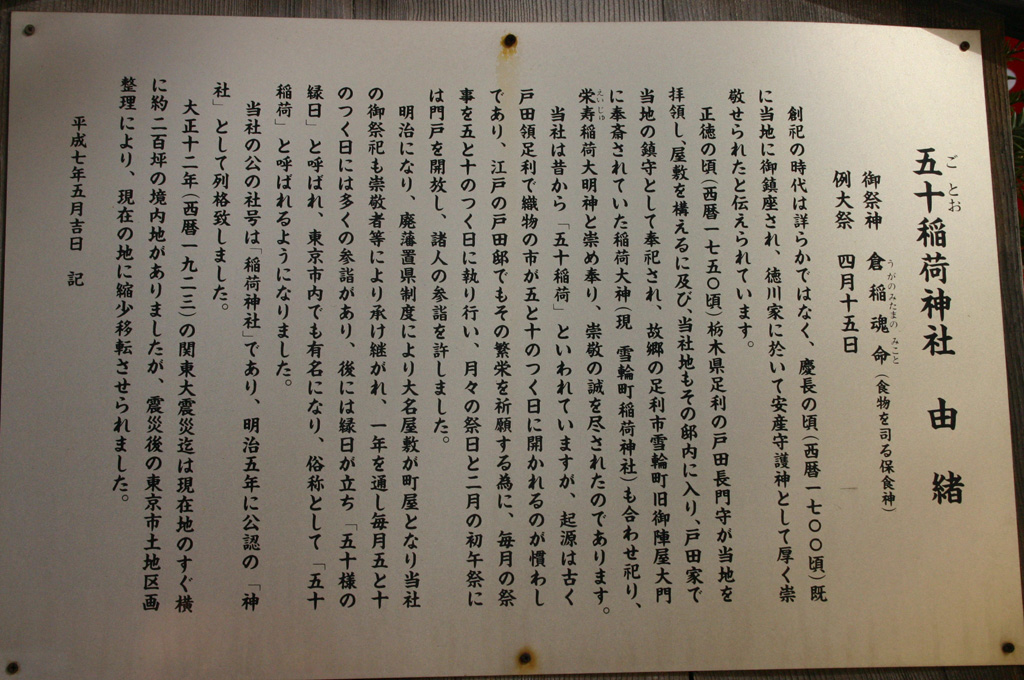 五十稲荷神社　由緒
ごとお
御祭神　倉稲魂命（食物を司る保食神）
うがのみたまのみこと
例大祭　四月十五日
創祀の時代は詳らかではなく、慶長の頃（西暦一七〇〇頃）既
に当地に御鎮座され、徳川家に於いて安産守護神として厚く崇
敬せられたと伝えられています。
正徳の頃（西暦一七五〇頃）栃木県足利の戸田長門守が当地を
拝領し、屋敷を構えるに及び、当社地もその邸内に入り、戸田家で
当地の鎮守として奉祀され、故郷の足利市雪輪町旧御陣屋大門
に奉斎されていた稲荷大神（現　雪輪町稲荷神社）も合わせ祀り、
栄寿稲荷大明神と崇め奉り、崇敬の誠を尽されたのであります。
えいじゅ
当社は昔から「五十稲荷」といわれていますが、起源は古く
戸田領足利で織物の市が五と十のつく日に開かれるのが慣わし
であり、江戸の戸田邸でもその繁栄を祈願する為に、毎月の祭
事を五と十のつく日に執り行い、月々の祭日と二月の初午祭に
は門戸を開放し、諸人の参詣を許しました。
明治になり、廃藩置県制度により大名屋敷が町屋となり当社
の御祭祀も崇敬者等により承け継がれ、一年を通し毎月五と十
のつく日には多くの参詣があり、後には縁日が立ち「五十様の
縁日」と呼ばれ、東京市内でも有名になり、俗称として「五十
稲荷」と呼ばれるようになりました。
当社の公の社号は「稲荷神社」であり、明治五年に公認の「神
社」として列格致しました。
大正十二年（西暦一九二三）の関東大震災迄は現在地のすぐ横
に約二百坪の境内地がありましたが、震災後の東京市土地区画
整理により、現在の地に縮少移転させられました。
平成七年五月吉日　記